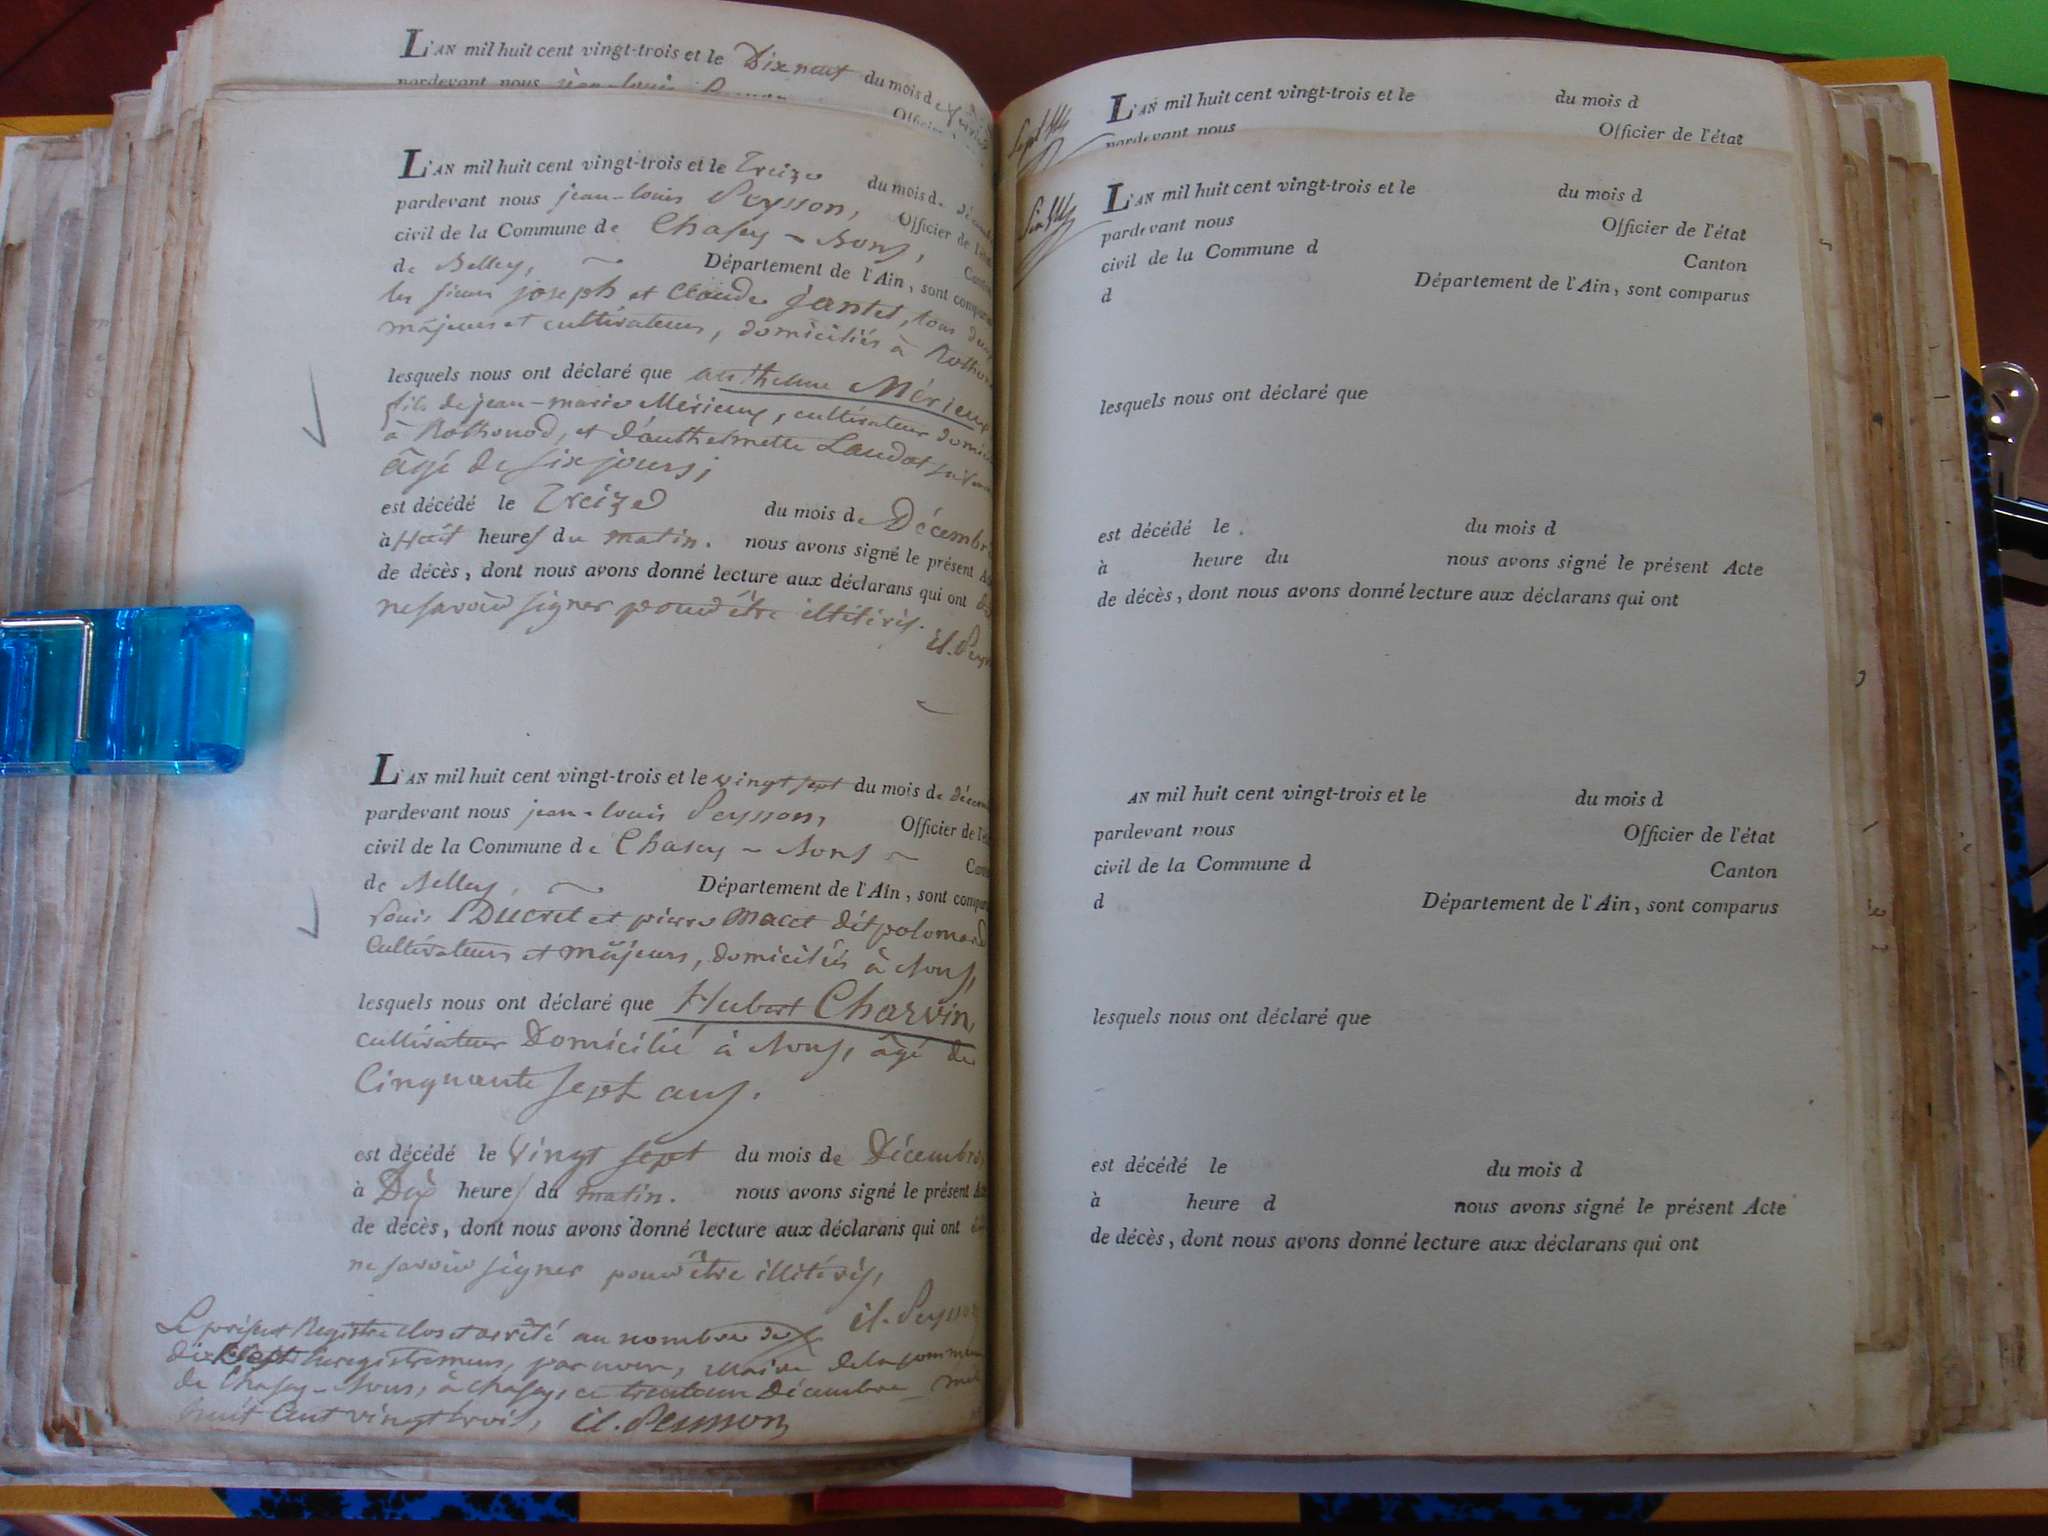 L'AN mil huit cent vingt-trois et le Dix neuf du mois de
pardevant nous jean-louis
L'AN mil huit cent vingt-trois et le Treize du mois de
pardevant nous jean-louis Peysson, Officier de l'état
civil de la Commune de Chasey-Bons,
de Belley, Département de l'Ain, sont comparus
les sieurs joseph et Claude jantet, tous deux
majeurs et cultivateurs, domiciliés à Rothonod
lesquels nous ont déclaré que anthelme Mérieux
fils de jean-marie Mérieux, cultivateur
à Rothonod, et d'anthelmette Laudat
âgé de six jours;
est décédé le Treize du mois de Décembre
à Huit heures du matin. nous avons signé le présent
de décès, dont nous avons donné lecture aux déclarans qui ont
ne savoir signer pour être illitérés.
L'AN mil huit cent vingt-trois et le vingt sept du mois de
pardevant nous jean-louis Peysson, Officier de
civil de la Commune de Chasey-Bons
de Belley, Département de l'Ain, sont
Louis Ducret et pierre Macet dit polomard
Cultivateurs et majeurs, domiciliés à Bons,
lesquels nous ont déclaré que Hubert Charvin,
cultivateur Domicilié à Bons, âgé de
Cinquante sept ans.
est décédé le Vingt sept du mois de Décembre
à Dix heures du matin. nous avons signé le présent
de décès, dont nous avons donné lecture aux déclarans qui ont
ne savoir signer pour être illitérés,
Le présent Registre clos et arrêté au nombre de
dix sept Enregistremens, par nous, maire de la commune
de Chasey-Bons, à Chasey, ce trente un Décembre mil
huit cent vingt trois,
L'AN mil huit cent vingt-trois et le du mois d
pardevant nous Officier de l'état
L'AN mil huit cent vingt-trois et le du mois d
pardevant nous Officier de l'état
civil de la Commune d Canton
d Département de l'Ain, sont comparus
lesquels nous ont déclaré que
est décédé le du mois d
à heure du nous avons signé le présent Acte
de décès, dont nous avons donné lecture aux déclarans qui ont
AN mil huit cent vingt-trois et le du mois d
pardevant nous Officier de l'état
civil de la Commune d Canton
d Département de l'Ain, sont comparus
lesquels nous ont déclaré que
est décédé le du mois d
à heure d nous avons signé le présent Acte
de décès, dont nous avons donné lecture aux déclarans qui ont